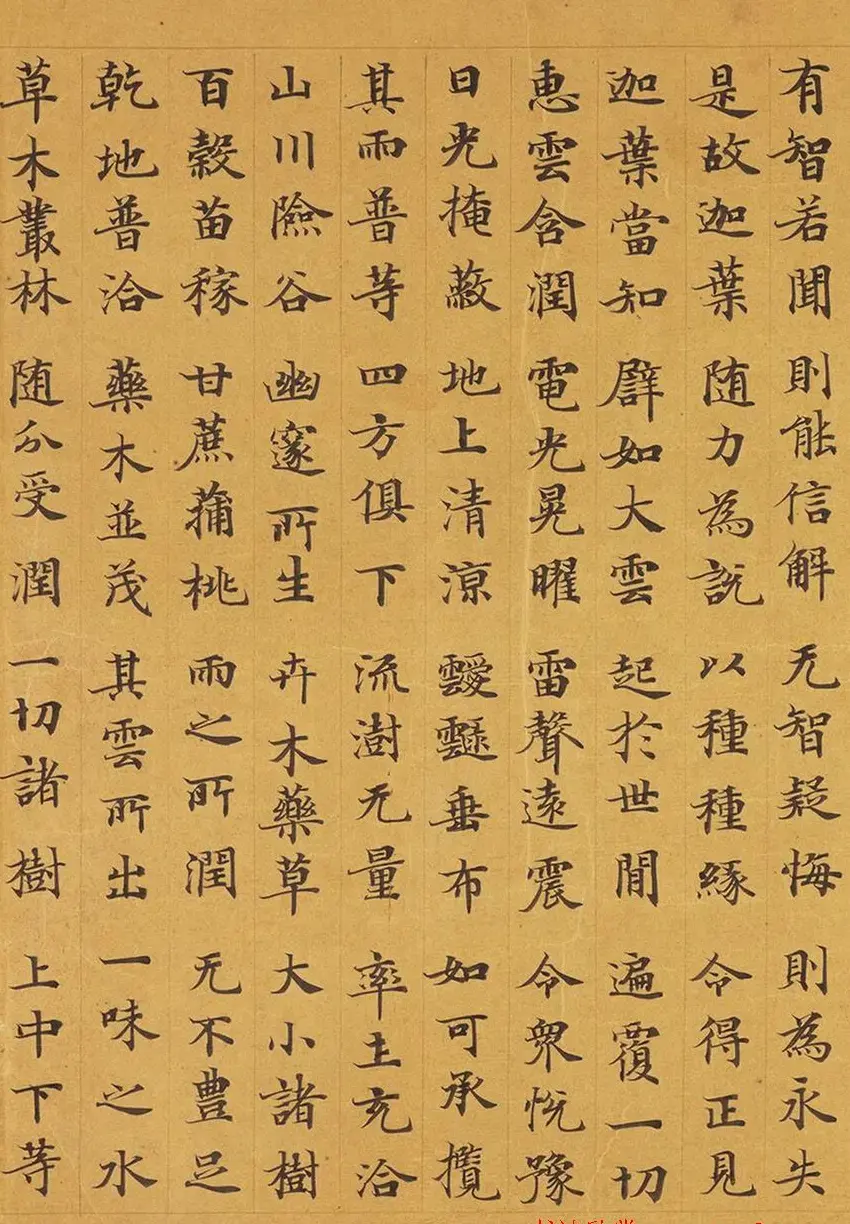 有智若聞 則能信解 无智疑悔 則為永失
是故迦葉 随力為說 以種種緣 令得正見
迦葉當知 譬如大雲 起於世間 遍覆一切
惠雲含潤 電光晃曜 雷聲遠震 令衆悅豫
日光掩蔽 地上清涼 靉靆垂布 如可承攬
其雨普等 四方俱下 流澍无量 率土充洽
山川險谷 幽邃所生 卉木藥草 大小諸樹
百穀苗稼 甘蔗蒱桃 雨之所潤 无不豊足
乾地普洽 藥木並茂 其雲所出 一味之水
草木叢林 随分受潤 一切諸樹 上中下等